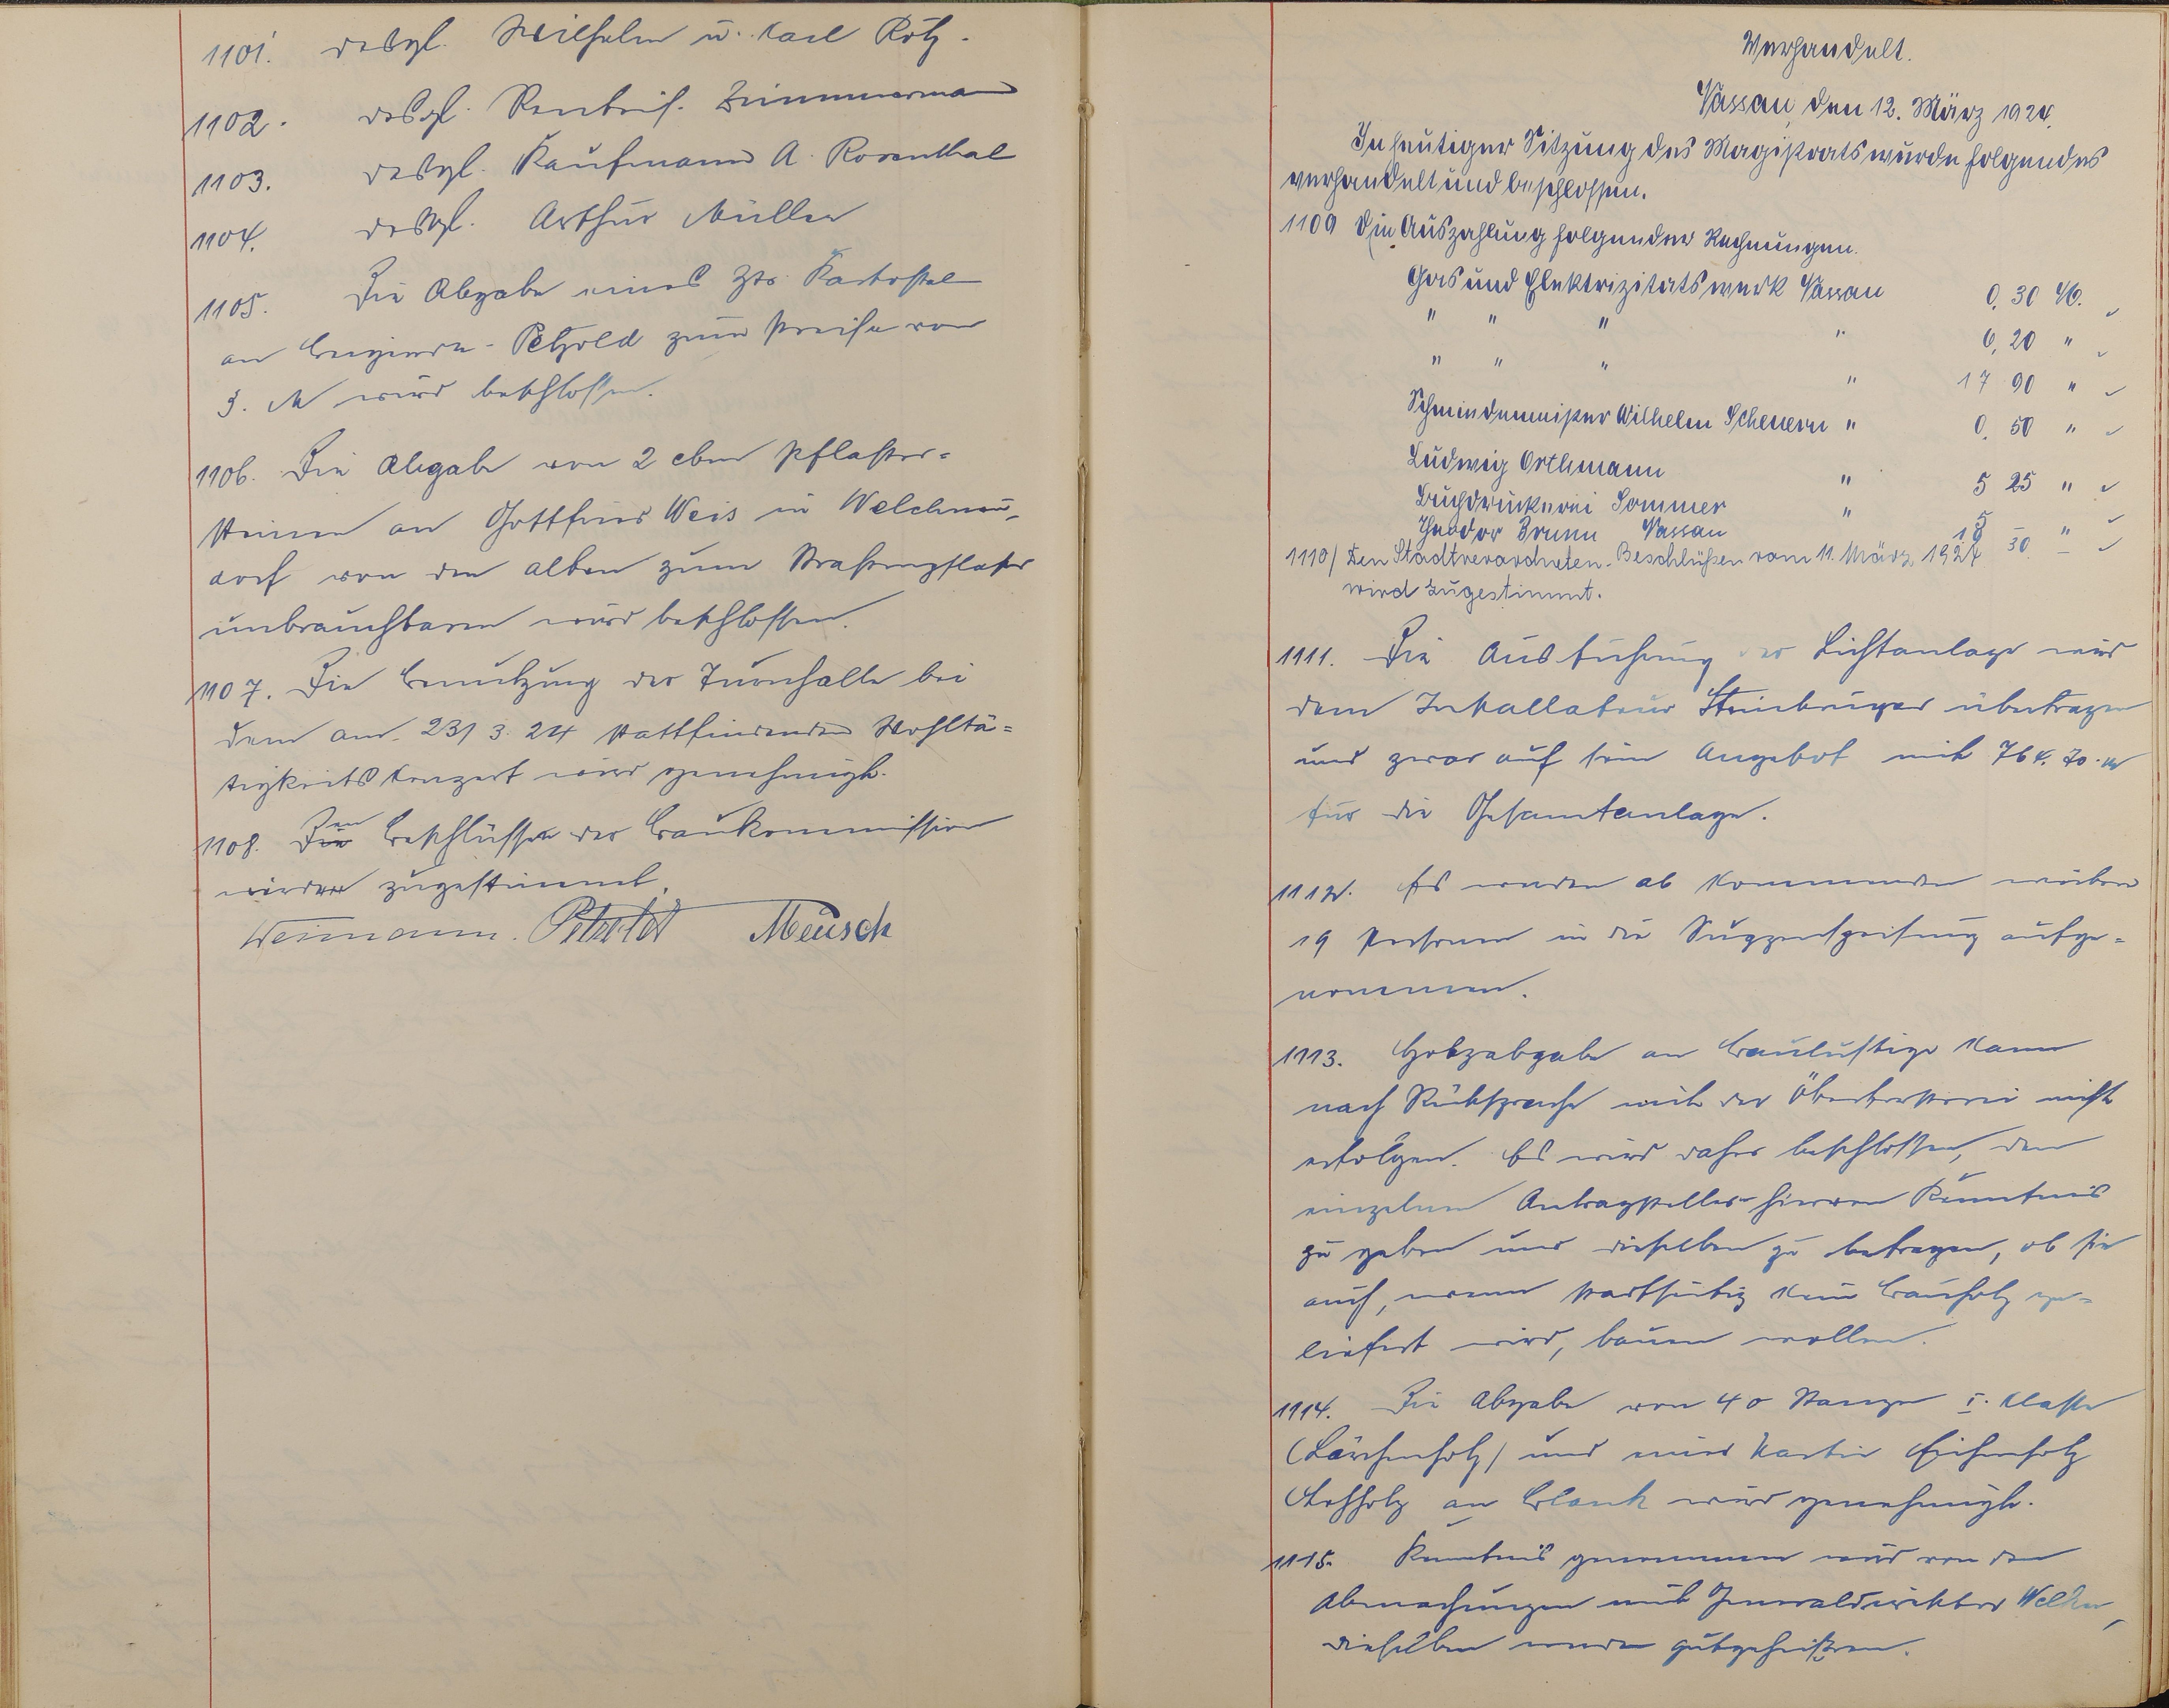 1101. desgl. Wilhelm u. Karl Rötz.
1102. desgl. Rentner Zimmermann
1103. desgl. Kaufmann A. Rosenthal
1104. desgl. Arthur Müller
1105. Die Abgabe eines Ztr. Kartoffel
an Petzold zum Preise von
3. M wird beschlossen.
1106. Die Abgabe von 2 cbm Pflaster=
steinen an Gottfried Weis in Welchneu-
dorf von den alten zum Straßenpflaster
unbrauchbaren wird beschlossen.
1107. Die Benutzung der Turnhalle bei
dem am 23/3. 24 stattfindenden Wohltä=
tigkeitskonzert wird genehmigt.
1108. Den Beschlüssen der Baukommission
wird zugestimmt.
Weimann. Petzoldt Meusch
Verhandelt.
Nassau, den 12. März 1924.
In heutiger Sitzung des Magistrats wurde folgendes
verhandelt und beschlossen.
1109 Die Auszahlung folgender Rechnungen.
Gas und Elektrizitätswerk Nassau 0,30 M.
" " " " 6,20 "
" " " " 17 90 "
Schmiedemeister Wilhelm Scheuern " 0,50 "
Ludwig Orthmann " 5 25 "
Buchdruckerei Sommer " 5 "
Theodor Bruun Nassau 18 30
1110/ Den Stadtverordneten-Beschlüßen vom 11. März 1924
wird zugestimmt.
1111. Die Ausführung der Lichtanlage wird
dem Installateur Steinbrüger übertragen
und zwar auf sein Angebot mit 764.70 M
für die Gesamtanlage.
1112. Es werden ab kommenden
19 Personen in die Suppenspeisung aufge=
nommen.
1113. Holzabgabe an Baulustige kann
nach Rücksprache mit der Oberförsterei nicht
erfolgen. Es wird daher beschlossen, den
einzelnen Antragsteller hiervon Kenntnis
zu geben und dieselben zu befragen, ob sie
auch, wenn stadtseitig kein Bauholz ge=
liefert wird, bauen wollen.
1114. Die Abgabe von 40 Stangen I. Klasse
(Lärchenholz) und einer Partie Eichenholz
Astholz an Blank wird genehmigt.
1115. Kenntnis genommen wird von den
Abmachungen mit Generaldirektor Welker,
dieselben werden gutgeheißen.